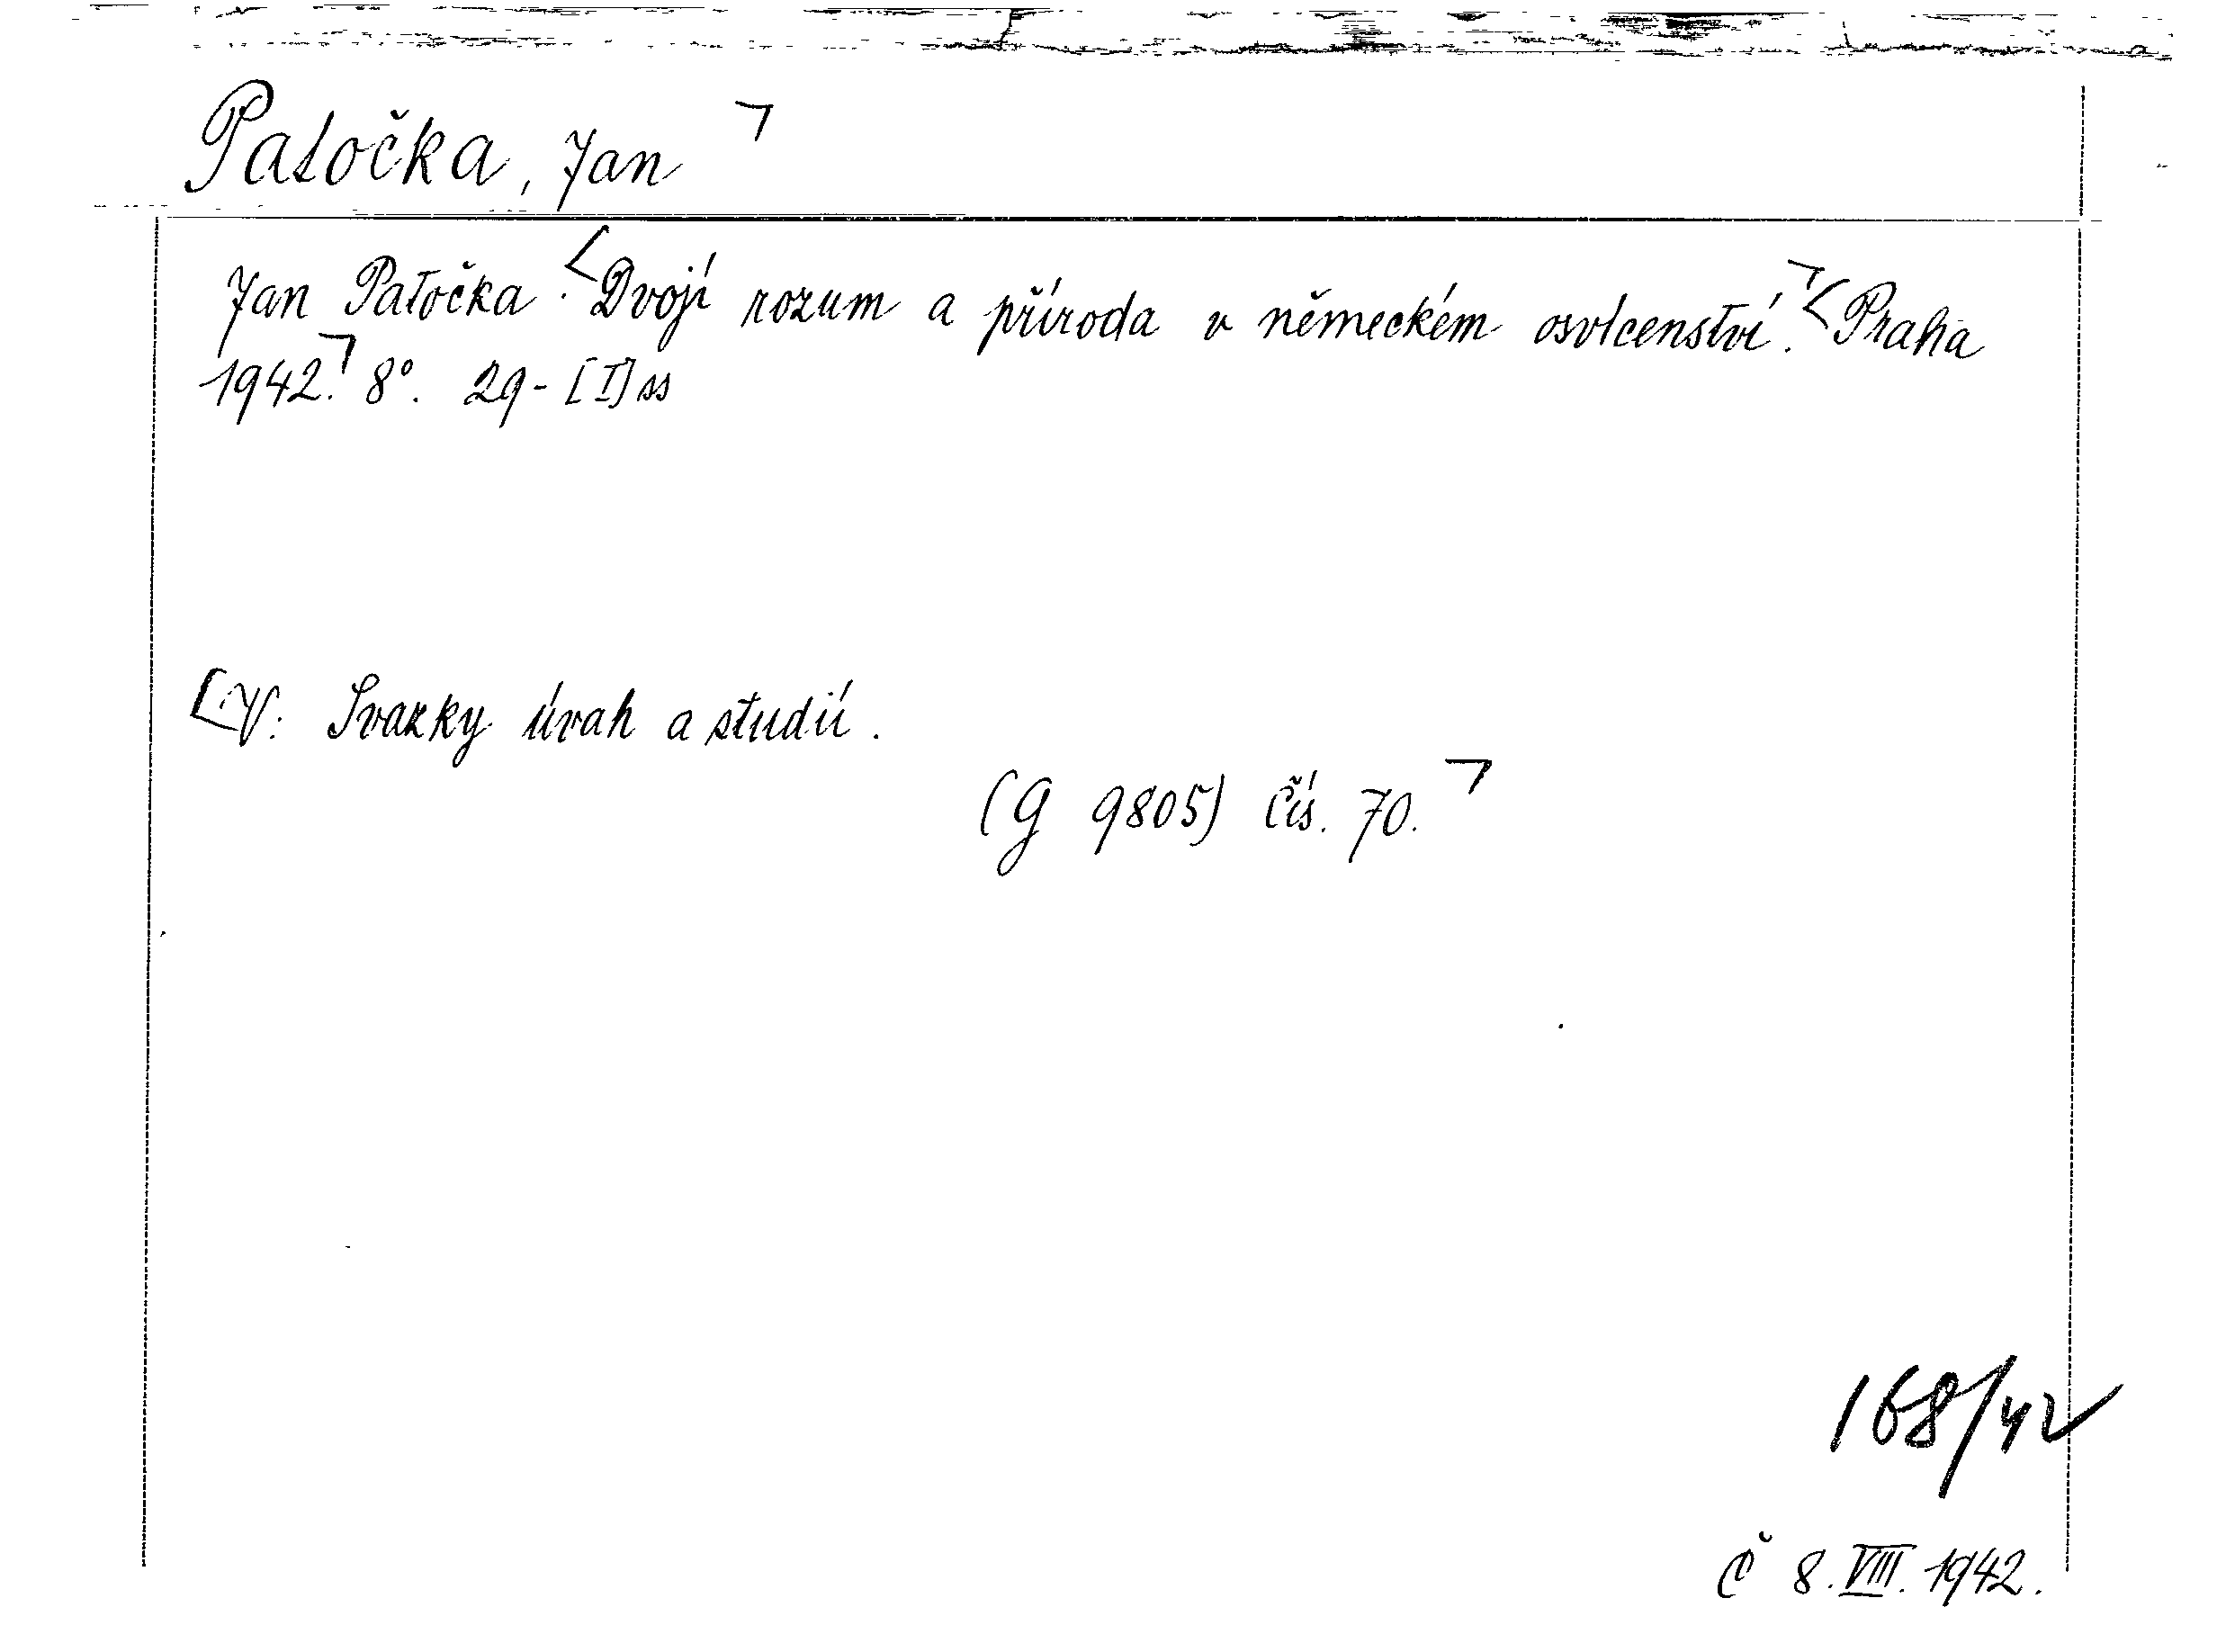 Patočka, Jan
Jan Patočka. Dvojí rozum a příroda v německém osvícenství. Praha
1942. 8°. 29-[I] ss
V: Svazky úvah a studií.
(G 9805) Čís. 70.
168/42
Č 8. VIII. 1942.